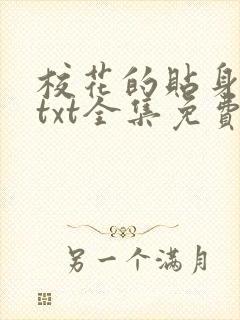 校花的貼身
txt全集免費
另一个满月